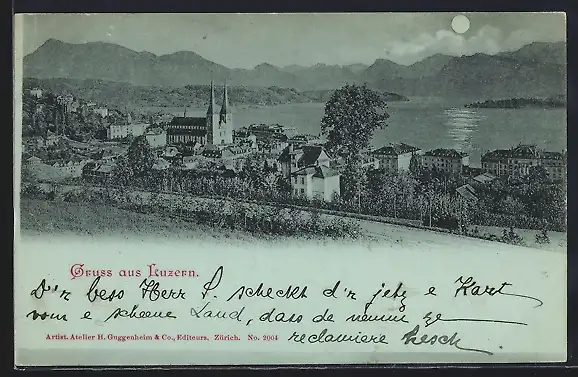 Gruss aus Luzern.
D'r bess Herr S. scheckt d'r jetz e Kart
vom e scheene Land, dass de nimmi ge
Artist. Atelier H. Guggenheim & Co., Editeurs, Zürich. No. 2004
reclamiere hesch